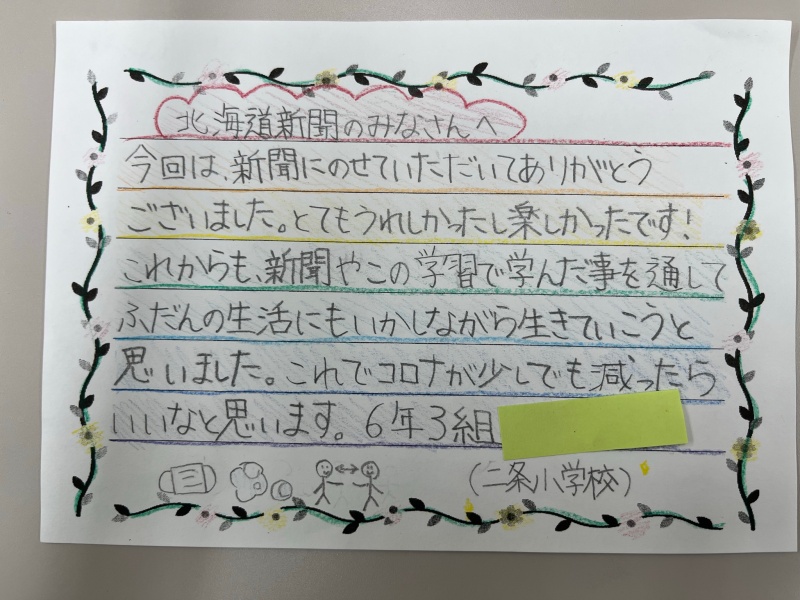 北海道新聞のみなさんへ
今回は、新聞にのせていただいてありがとう
ございました。とてもうれしかったし楽しかったです!
これからも、新聞やこの学習で学んだ事を通して
ふだんの生活にもいかしながら生きていこうと
思いました。これでコロナが少しでも減ったら
いいなと思います。6年3組
(二条小学校)